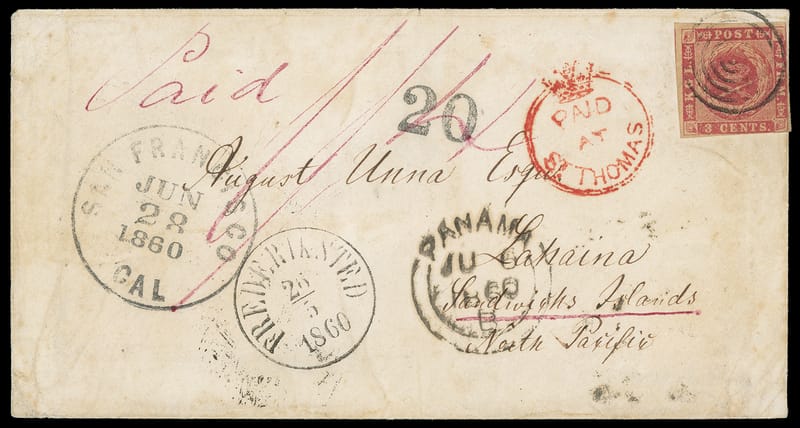 POST
K. G. L.
3 CENTS.
Paid
20
PAID
AT
ST. THOMAS
SAN FRANCISCO
JUN
28
1860
CAL
August Unna Esqu
Lahaina
Sandwichs Islands
North Pacific
FREDERIKSTED
26/5
1860
PANAMA
JU
60
B